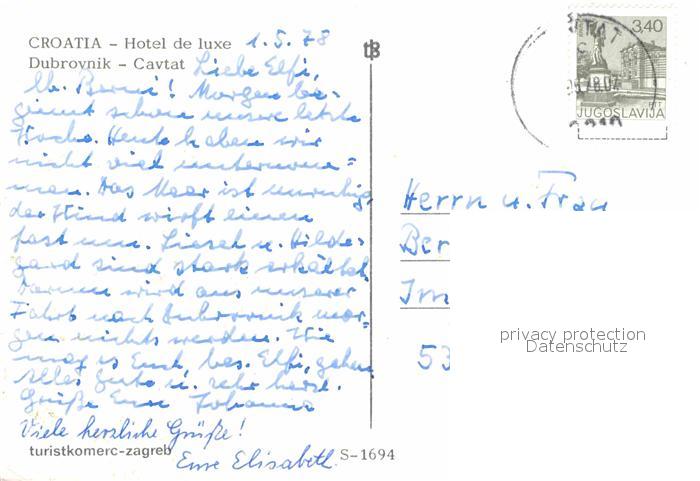 CROATIA – Hotel de luxe 1.5.78
Dubrovnik – Cavtat Liebe Elfi,
lb. Berni! Morgen be-
ginnt schon unsere letzte
Woche. Heute haben wir
nicht viel unternom=
men. Das Meer ist unruhig,
der Wind wirft einen
fast um. Liesel u. Hilde-
gard sind stark erkältet.
Darum wird aus unserer
Fahrt nach Dubrovnik mor-
gen nichts werden. Wie
mag es Euch, bes. Elfi, gehen
Alles Gute u. sehr herzl.
Grüße Eure Johanna
Viele herzliche Grüße!
turistkomerc-zagreb S-1694
Eure Elisabeth.
tB
3,40
PTT
JUGOSLAVIJA
Herrn u. Frau
Ber
Im
53
privacy protection
Datenschutz